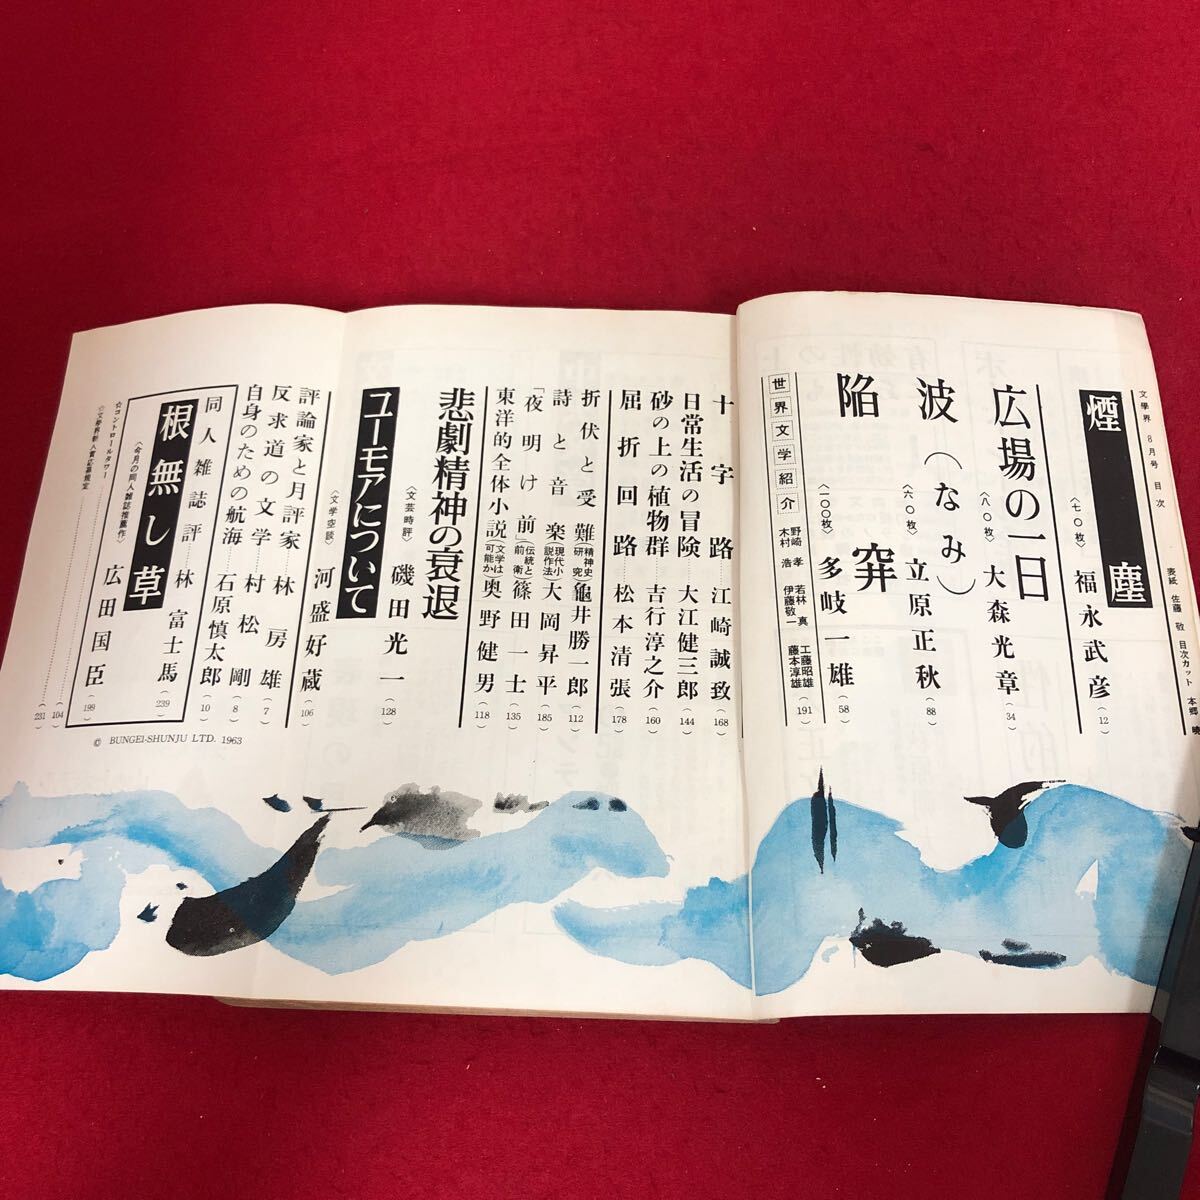 文學界 8月号 目次
表紙 佐藤 敬 目次カット 本郷
煙塵
〈七〇枚〉
福永武彦(12)
広場の一日
〈八〇枚〉
大森光章(34)
波(なみ)
〈六〇枚〉
立原正秋(88)
陥穽
〈一〇〇枚〉
多岐一雄(58)
世界文学紹介
野崎 孝 若林 真 工藤昭雄
木村 浩 伊藤敬一 藤本淳雄
(191)
十字路 江崎誠致(168)
日常生活の冒険 大江健三郎(144)
砂の上の植物群 吉行淳之介(160)
屈折回路 松本清張(178)
折伏と受難(精神史研究)亀井勝一郎(112)
詩と音楽(現代小説作法)大岡昇平(185)
「夜明け前」(伝統と前衛)篠田一士(135)
東洋的全体小説(文学は可能か)奥野健男(118)
悲劇精神の衰退
〈文芸時評〉
磯田光一(128)
ユーモアについて
〈文学空談〉
河盛好蔵(106)
評論家と月評家 林房雄(7)
反求道の文学 村松剛(8)
自身のための航海 石原慎太郎(10)
同人雑誌評 林富士馬(239)
根無し草
〈今月の同人雑誌推薦作〉
広田国臣(199)
☆コントロールタワー(104)
☆文學界新人賞応募規定(231)
© BUNGEI-SHUNJU LTD. 1963